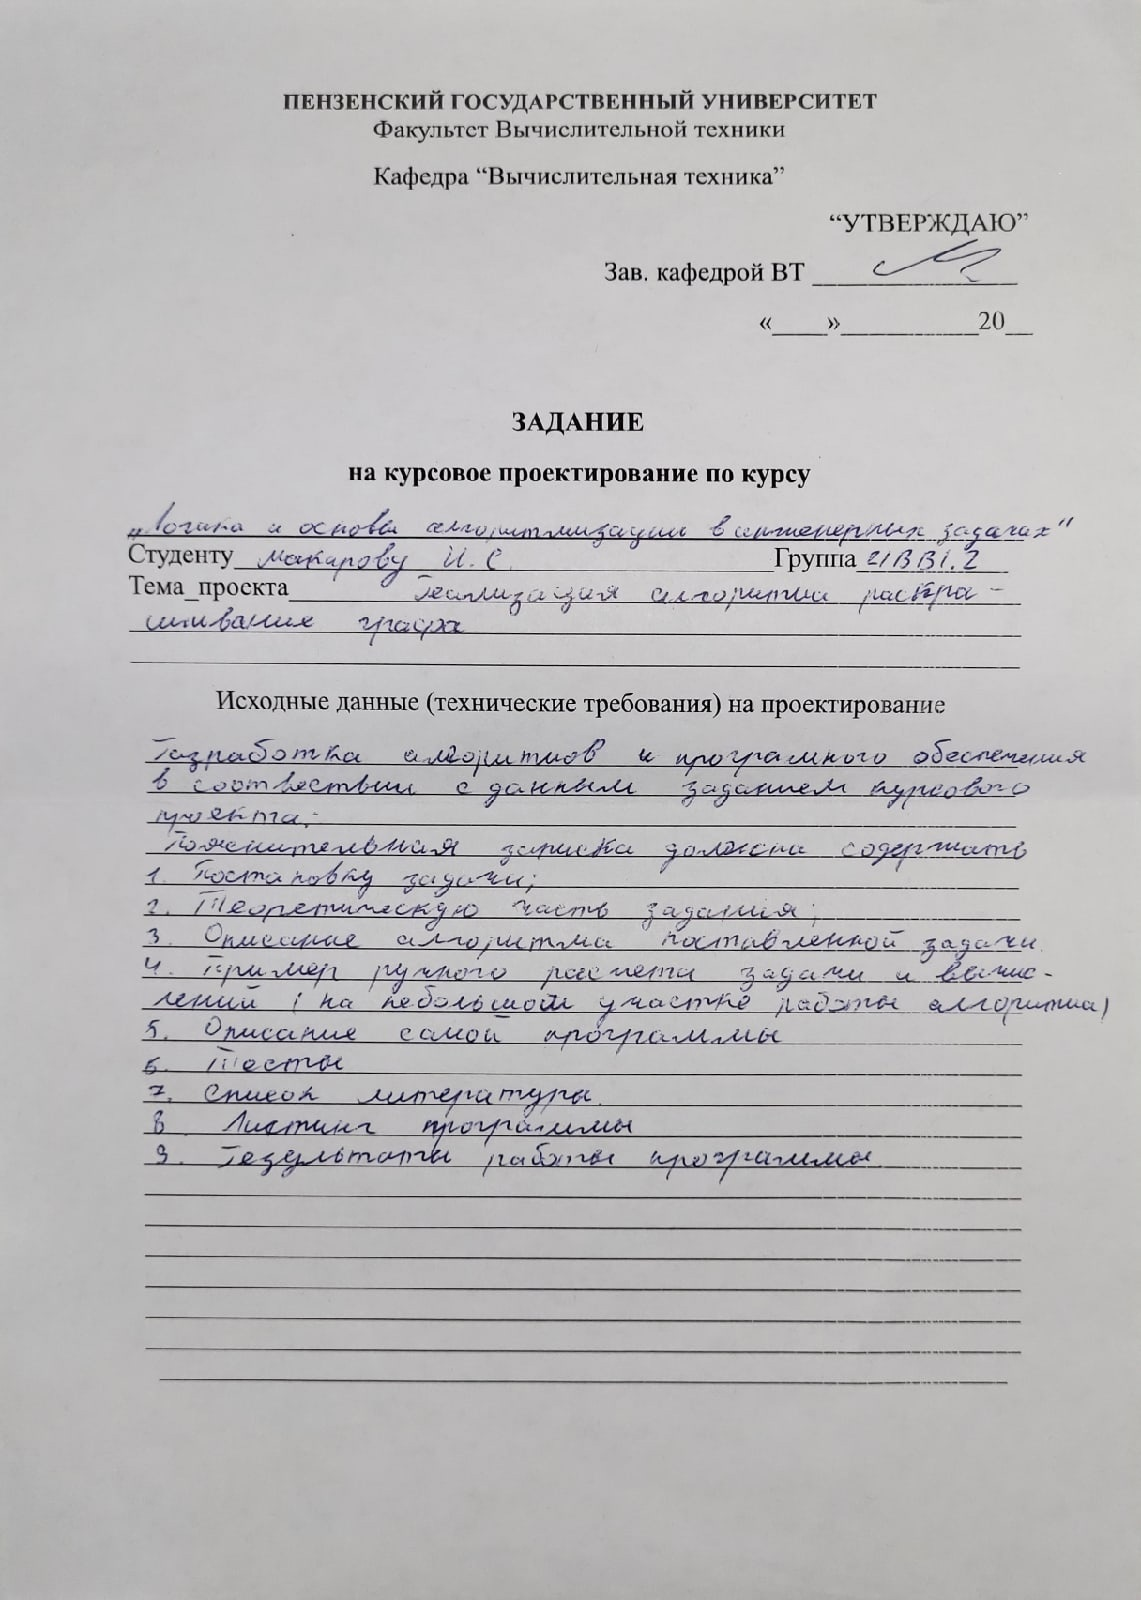 ПЕНЗЕНСКИЙ ГОСУДАРСТВЕННЫЙ УНИВЕРСИТЕТ
Факультет Вычислительной техники
Кафедра “Вычислительная техника”
“УТВЕРЖДАЮ”
Зав. кафедрой ВТ
«____»__________20__
ЗАДАНИЕ
на курсовое проектирование по курсу
„Логика и основы алгоритмизации в инженерных задачах“
Студенту Макарову И. С. Группа 21ВВ1.2
Тема проекта Реализация алгоритма раскра-
шивания графа
Исходные данные (технические требования) на проектирование
Разработка алгоритмов и програмного обеспечения
в соотвествии с данным заданием курсового
проекта.
Пояснительная записка должна содержать
1. Постановку задачи;
2. Теоретическую часть задания;
3. Описание алгоритма поставленной задачи
4. Пример ручного расчета задачи и вычис-
лений (на небольшом участке работы алгоритма)
5. Описание самой программы
6. Тесты
7. Список литературы.
8 Листинг программы
9. Результаты работы программы.